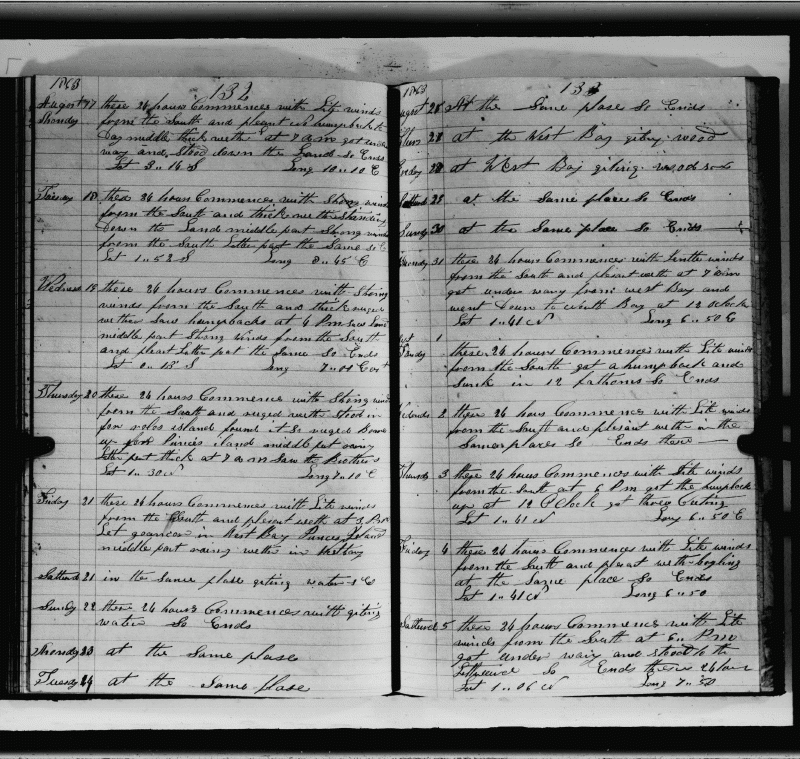 1863 132
August 17 these 24 hours Commences with Lite winds
Monday from the South and plesent in humpbacks
Day middle thick wether at 7 am got under
way and stood down the Land so Ends
Lat 3.. 14 S Long 10.. 10 E
Tuesday 18 these 24 hours Commences with Strong winds
from the South and thick wether standing
Down the Land middle part Strong winds
from the South Latter part the Same so E
Lat 1.. 52 S Long 8.. 45 E
Wednesd 19 these 24 hours Commences with Strong
winds from the South and thick ruged
wether saw humpbacks at 4 Pm saw Land
middle part Strong winds from the South
and plesent Latter part the Same So Ends
Lat 0.. 13 S Long 7.. 01 East
Thursday 20 these 24 hours Commences with Strong winds
from the South and ruged wether Stood in
for island found it So ruged
up for Princes iland middle part rainy
Latter part thick at 7 am Saw the Brothers
Lat 1.. 30 N Long 7.. 10 E
Friday 21 these 24 hours Commences with Lite winds
from the South and plesent weth at 3 Pm
Let go ancor in West Bay Princes Island
middle part rainy wether in the bay
Satturd 21 in the Same plase giting water s E
Sunday 22 these 24 hours Commences with giting
water So Ends
Monday 23 at the Same plase
Tuesday 24 at the Same plase
1863 133
August 26 At the Same plase So Ends
Thurs 27 at the West Bay giting wood
Friday 28 at West Bay giting wood so E
Satturd 29 at the Same place So Ends
Sunday 30 at the Same place So Ends
Monday 31 these 24 hours Commences with Lentle winds
from the South and plesint weth at 7 am
got under waay from west Bay and
went Down to South Bay at 12 Oclock
Lat 1.. 41 N Long 6.. 50 E
Sept 1
Tusdy these 24 hours Commences with Lite winds
from the South got a humpback and
Sunk in 12 fathoms So Ends
Wednesd 2 these 24 hours Commences with Lite winds
from the South and plesent wether in the
Same plases So Ends these
Thursdy 3 these 24 hours Commences with Lite winds
from the South at 6 Pm got the humpback
up at 12 OClock got throu Cuting
Lat 1.. 41 N Long 6.. 50 E
Friday 4 these 24 hours Commences with Lite winds
from the South and plesent weth boyling
at the Same place So Ends
Lat 1.. 41 N Long 6.. 50
Satturd 5 these 24 hours Commences with Lite
winds from the South at 6.. Pm
got under waiy and stood to the
So Ends these 24 hour
Lat 1.. 06 N Long 7.. 50